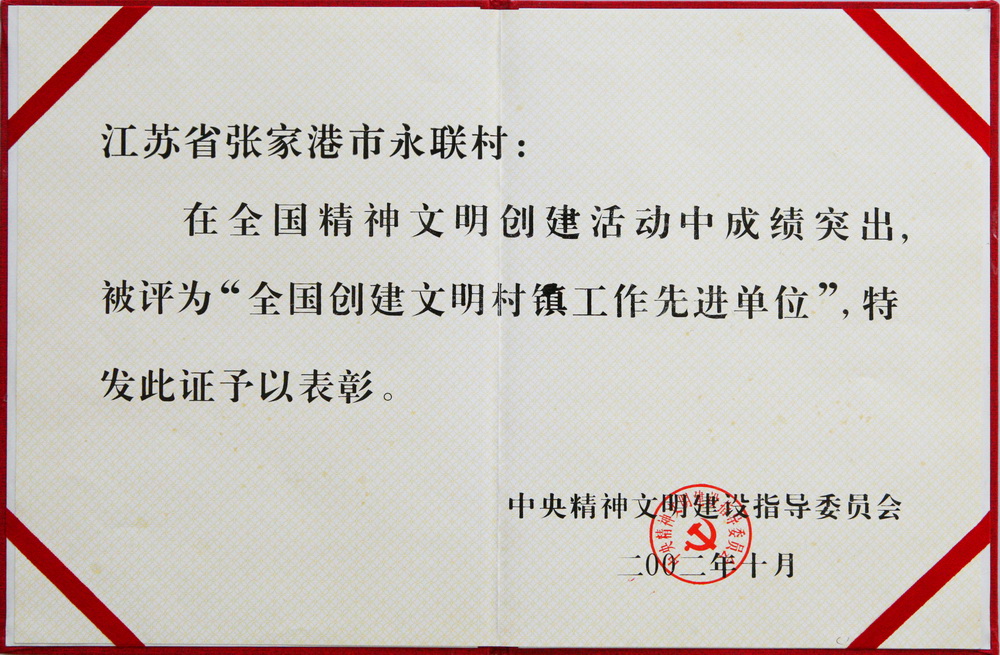 江苏省张家港市永联村：
在全国精神文明创建活动中成绩突出，
被评为“全国创建文明村镇工作先进单位”，特
发此证予以表彰。
中央精神文明建设指导委员会
二〇〇二年十月
中央精神文明建设指导委员会